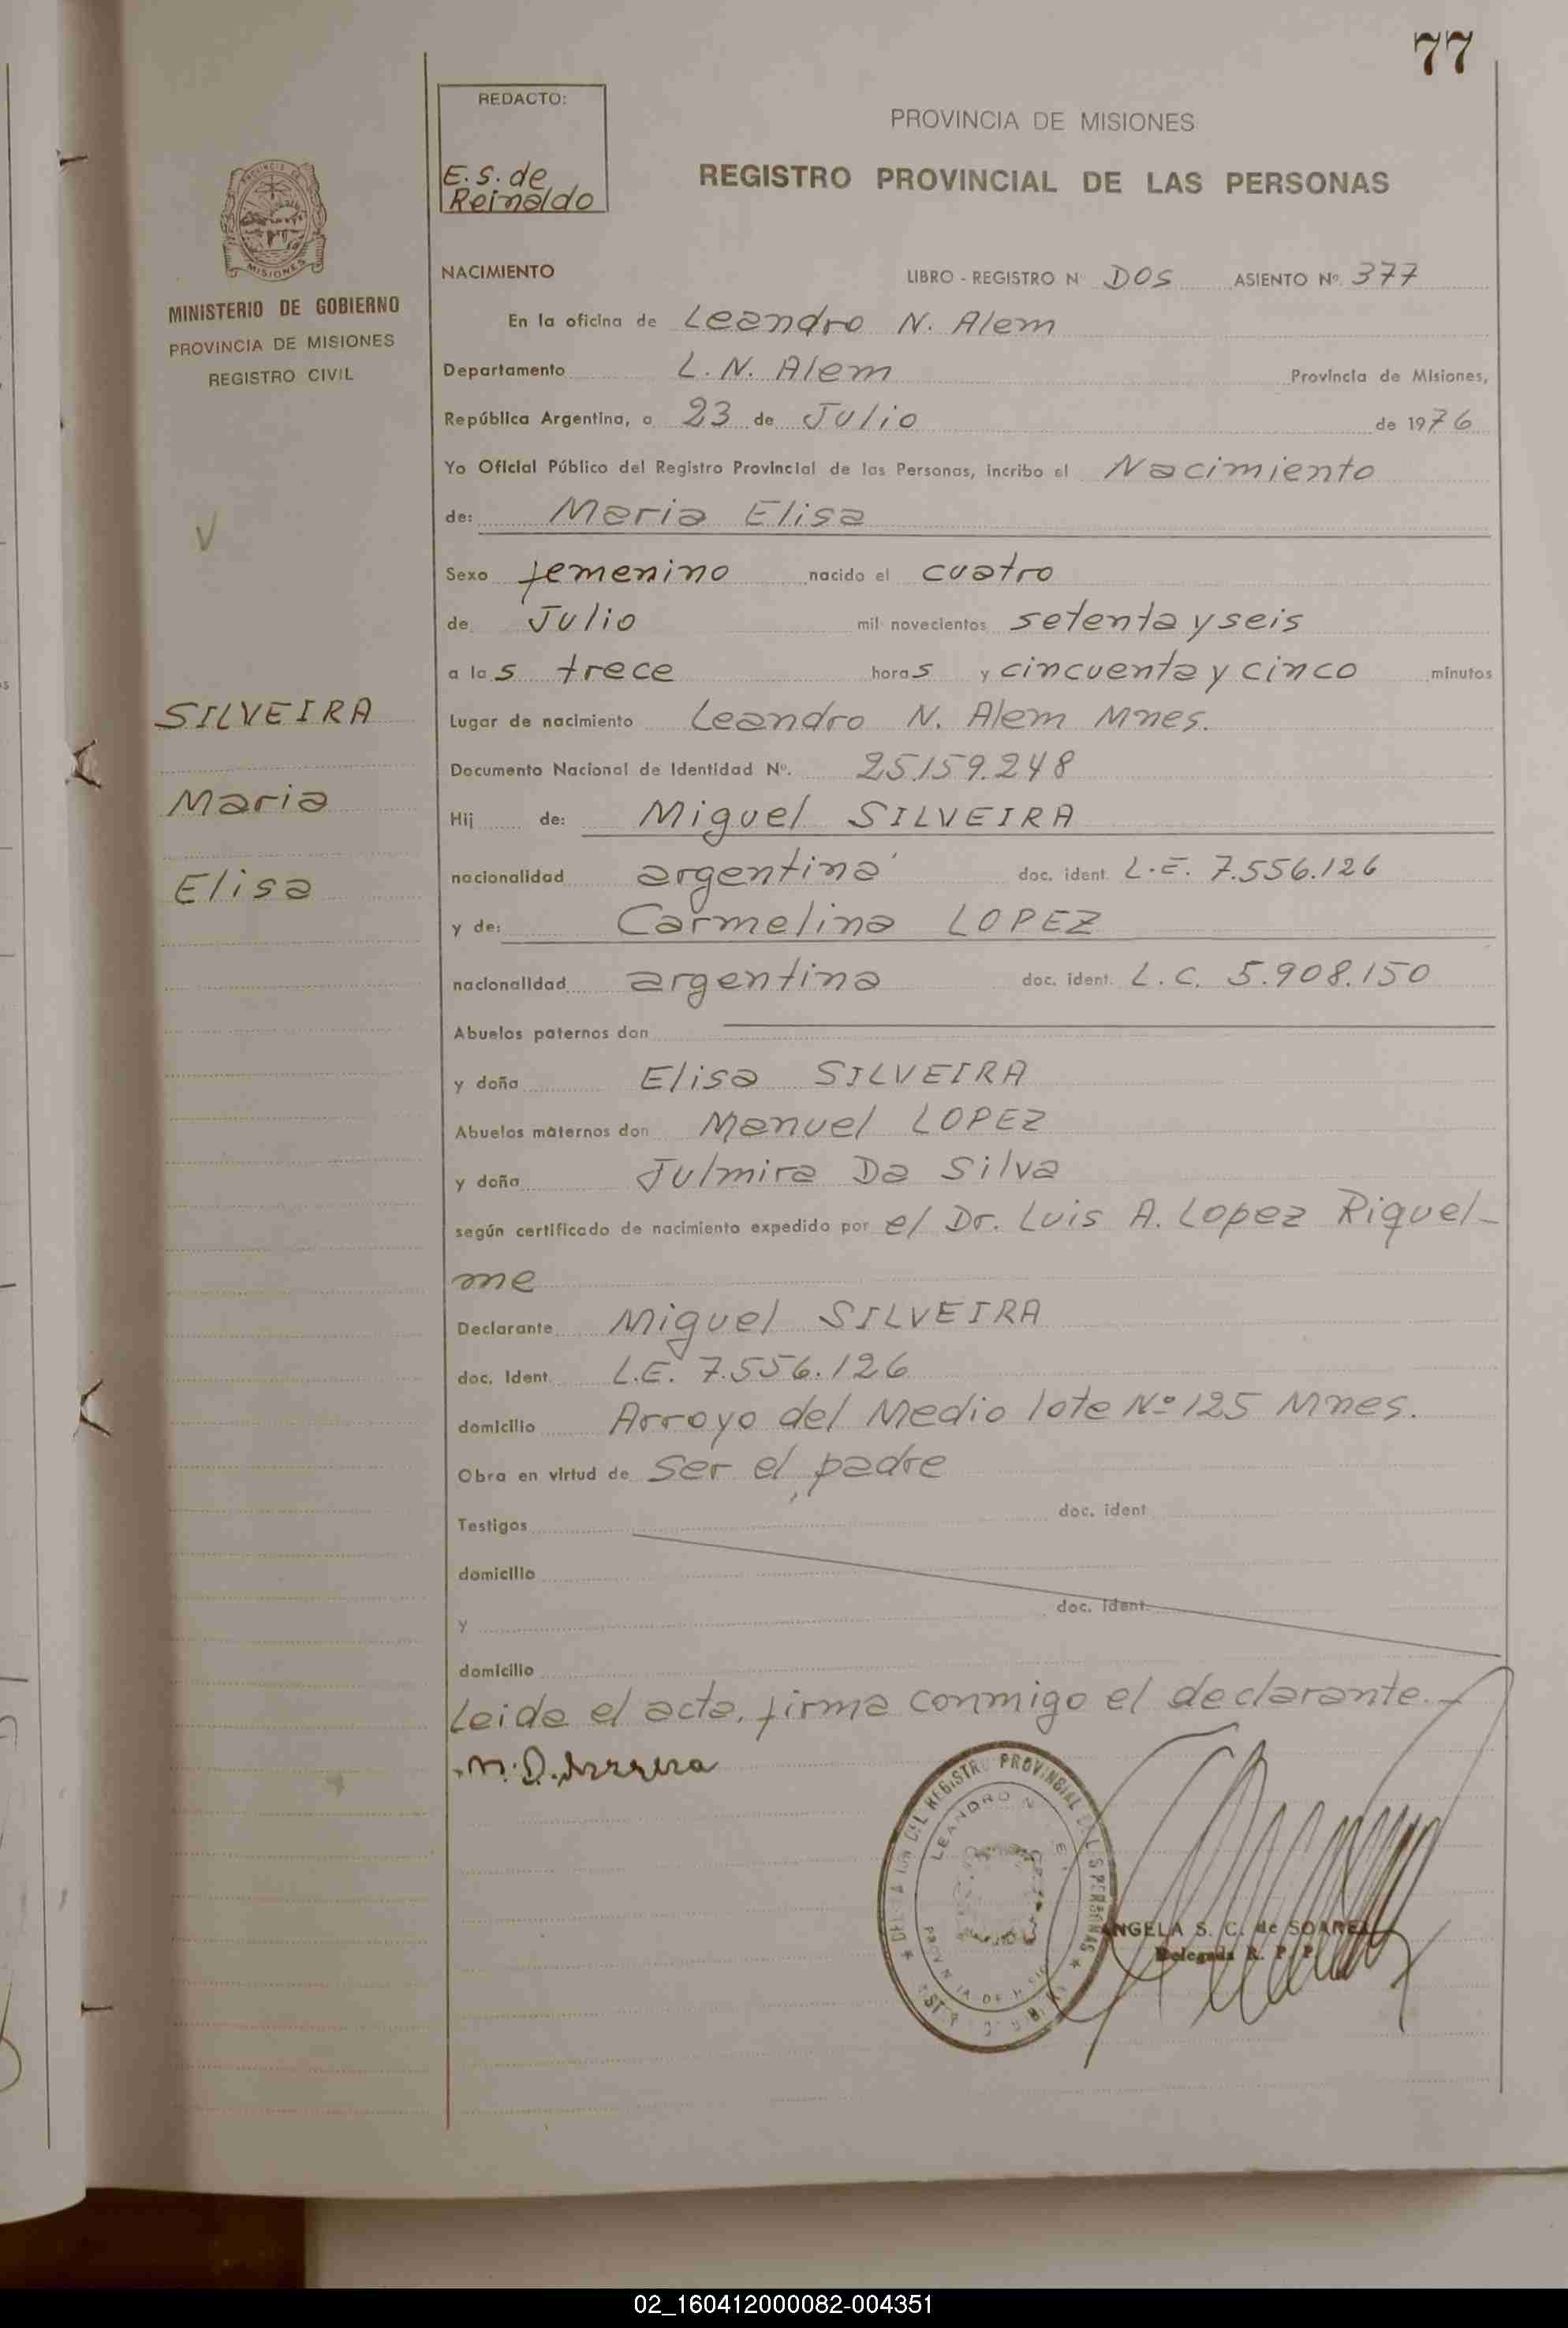 77
REDACTO:
E. S. de
Reinaldo
PROVINCIA DE MISIONES
REGISTRO PROVINCIAL DE LAS PERSONAS
MISIONES
MINISTERIO DE GOBIERNO
PROVINCIA DE MISIONES
REGISTRO CIVIL
NACIMIENTO LIBRO - REGISTRO N DOS ASIENTO Nº. 377
En la oficina de Leandro N. Alem
Departamento L. N. Alem Provincia de Misiones,
República Argentina, a 23 de Julio de 1976
Yo Oficial Público del Registro Provincial de las Personas, incribo el Nacimiento
de: Maria Elisa
Sexo femenino nacido el cuatro
de Julio mil novecientos setenta y seis
a las trece horas y cincuenta y cinco minutos
Lugar de nacimiento Leandro N. Alem Mnes.
Documento Nacional de Identidad Nº. 25.159.248
Hij de: Miguel SILVEIRA
nacionalidad argentina doc. ident. L.E. 7.556.126
y de: Carmelina LOPEZ
nacionalidad argentina doc. ident. L.C. 5.908.150
Abuelos paternos don
y doña Elisa SILVEIRA
Abuelos maternos don Manuel LOPEZ
y doña Julmira Da Silva
según certificado de nacimiento expedido por el Dr. Luis A. Lopez Riquel-
me
Declarante Miguel SILVEIRA
doc. Ident. L.E. 7.556.126
domicilio Arroyo del Medio lote Nº 125 Mnes.
Obra en virtud de ser el padre
Testigos doc. ident
domicilio
y doc. ident.
domicilio
Leida el acta, firma conmigo el declarante.-
SILVEIRA
Maria
Elisa
DEL REGISTRO PROVINCIAL DE LAS PERSONAS
LEANDRO N.
ANGELA S. C. de SOAREZ
Delegada R. P. P.
02_160412000082-004351